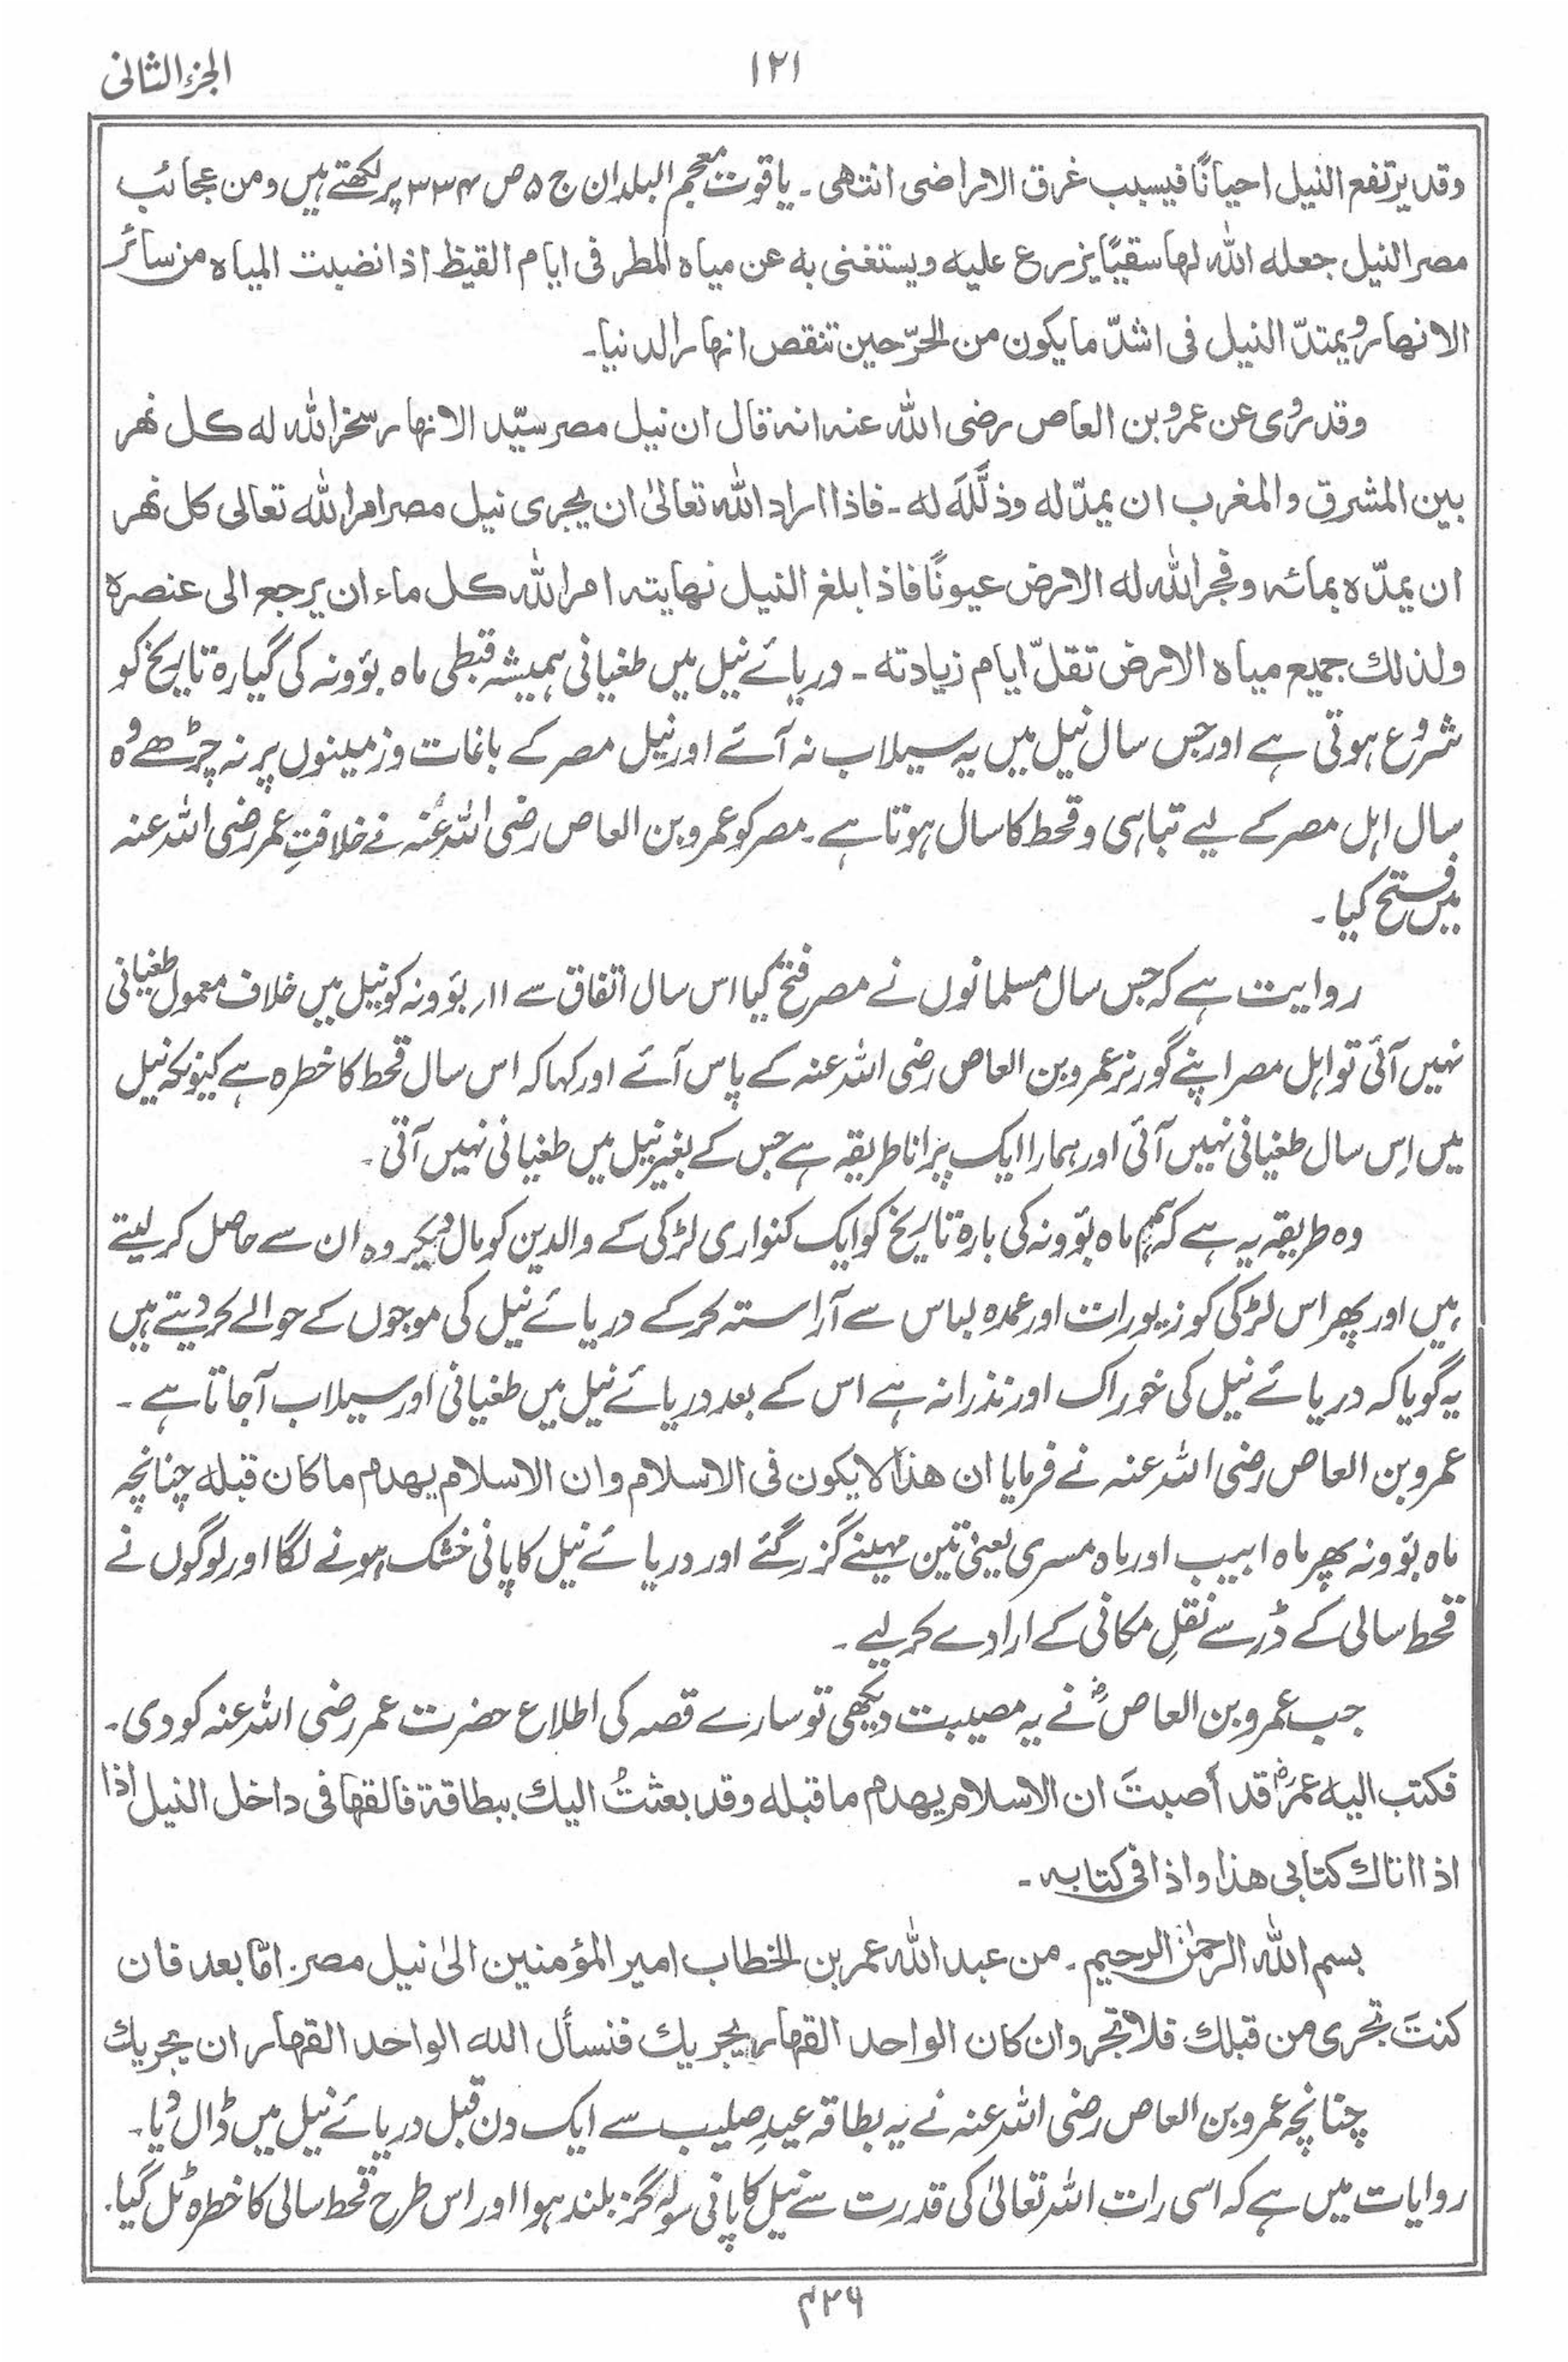 الجزء الثانی
۱۲۱
وقد یرتفع النیل احیانًا فیسبب غرق الاراضی انتھی ۔ یاقوت معجم البلدان ج ۵ ص ۳۳۴ پر لکھتے ہیں ومن عجائب
مصر النیل جعله الله لها سقیًا یزرع علیه ویستغنی به عن میاه المطر فی ایام القیظ اذا نضبت المیاه من سائر
الانهار ویمتدّ النیل فی اشدّ ما یکون من الحرّ حین تنقص انهار الدنیا ۔
وقد رُوی عن عمرو بن العاص رضی الله عنه انه قال ان نیل مصر سیّد الانهار سخر الله له کل نهر
بین المشرق والمغرب ان یمدّ له وذلّلَه له ۔ فاذا اراد الله تعالیٰ ان یجری نیل مصر امر الله تعالی کل نهر
ان یمدّه بمائه وفجر الله له الارض عیونًا فاذا بلغ النیل نهایته امر الله کل ماء ان یرجع الی عنصره
ولذلك جمیع میاه الارض تقلّ ایام زیادته ۔ دریائے نیل میں طغیانی ہمیشہ قبطی ماہ بؤونہ کی گیارہ تاریخ کو
شروع ہوتی ہے اور جس سال نیل میں یہ سیلاب نہ آئے اور نیل مصر کے باغات و زمینوں پر نہ چڑھے وُہ
سال اہل مصر کے لیے تباہی و قحط کا سال ہوتا ہے ۔ مصر کو عمرو بن العاص رضی اللہ عنہ نے خلافتِ عمر رضی اللہ عنہ
میں فتح کیا ۔
روایت ہے کہ جس سال مسلمانوں نے مصر فتح کیا اس سال اتفاق سے ۱۱؍ بؤونہ کو نیل میں خلاف معمول طغیانی
نہیں آئی تو اہل مصر اپنے گورنر عمرو بن العاص رضی اللہ عنہ کے پاس آئے اور کہا کہ اس سال قحط کا خطرہ ہے کیونکہ نیل
میں اِس سال طغیانی نہیں آئی اور ہمارا ایک پرانا طریقہ ہے جس کے بغیر نیل میں طغیانی نہیں آتی ۔
وہ طریقہ یہ ہے کہ ہم ماہ بؤونہ کی بارہ تاریخ کو ایک کنواری لڑکی کے والدین کو مال دیکر وہ ان سے حاصل کر لیتے
ہیں اور پھر اس لڑکی کو زیورات اور عمدہ لباس سے آراستہ کرکے دریائے نیل کی موجوں کے حوالے کر دیتے ہیں
یہ گویا کہ دریائے نیل کی خوراک اور نذرانہ ہے اس کے بعد دریائے نیل میں طغیانی اور سیلاب آجاتا ہے ۔
عمرو بن العاص رضی اللہ عنہ نے فرمایا ان هذا لا یکون فی الاسلام وان الاسلام یهدم ما کان قبله چنانچہ
ماہ بؤونہ پھر ماہ ابیب اور ماہ مسری یعنی تین مہینے گزر گئے اور دریائے نیل کا پانی خشک ہونے لگا اور لوگوں نے
قحط سالی کے ڈر سے نقلِ مکانی کے ارادے کر لیے ۔
جب عمرو بن العاصؓ نے یہ مصیبت دیکھی تو سارے قصہ کی اطلاع حضرت عمر رضی اللہ عنہ کو دی ۔
فکتب الیه عمرؓ قد أصبتَ ان الاسلام یهدم ما قبله وقد بعثتُ الیك ببطاقة فالقها فی داخل النیل اذا
اذا اتاك کتابی هذا واذا فی کتابه ۔
بسم الله الرحمٰن الرحیم ۔ من عبد الله عمر بن الخطاب امیر المؤمنین الیٰ نیل مصر ۔ امّا بعد فان
کنتَ تجری من قبلك فلا تجر وان کان الواحد القهار یجریك فنسأل الله الواحد القهار ان یجریك
چنانچہ عمرو بن العاص رضی اللہ عنہ نے یہ بطاقہ عیدِ صلیب سے ایک دن قبل دریائے نیل میں ڈال دیا ۔
روایات میں ہے کہ اسی رات اللہ تعالیٰ کی قدرت سے نیل کا پانی سولہ گز بلند ہوا اور اس طرح قحط سالی کا خطرہ ٹل گیا ۔
۴۲۶